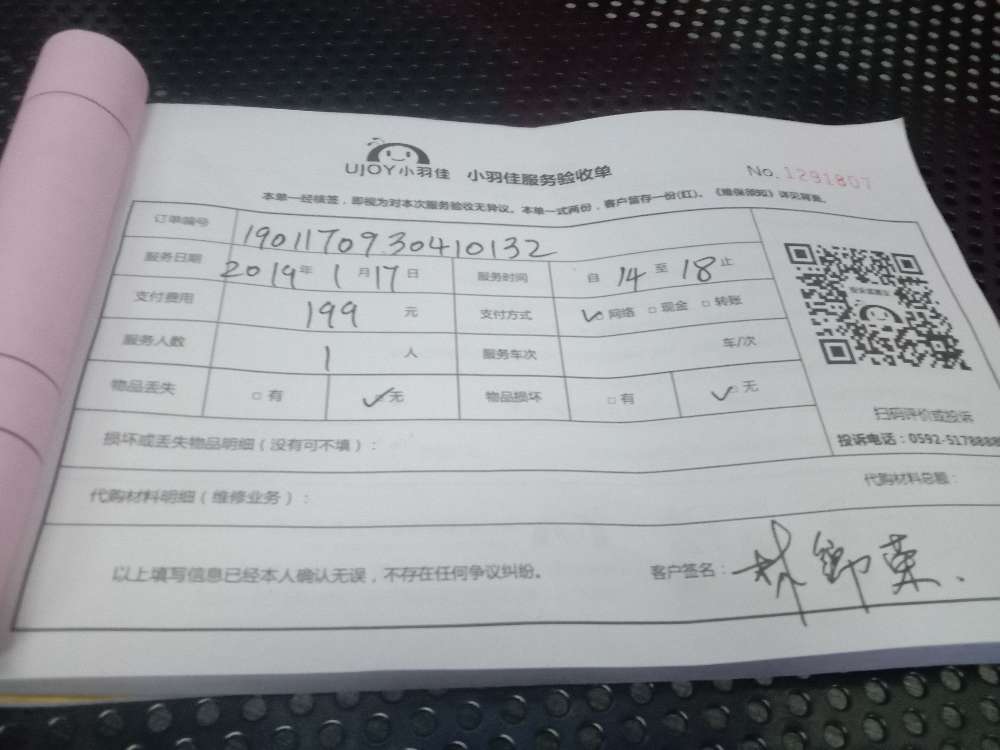 UJOY小羽佳 小羽佳服务验收单 No.1291807
本单一经核签，即视为对本次服务验收无异议。本单一式两份，客户留存一份(红)。《维保须知》详见背面。
订单编号 1901170930410132
服务日期 2019年 1月17日 服务时间 自 14 至 18 止
支付费用 199 元 支付方式 ✓网络 □现金 □转账
服务人数 1 人 服务车次 车/次
物品丢失 □有 ✓无 物品损坏 □有 ✓无
扫码评价或投诉
投诉电话：0592-5178888
损坏或丢失物品明细（没有可不填）：
代购材料明细（维修业务）： 代购材料总额：
以上填写信息已经本人确认无误，不存在任何争议纠纷。 客户签名：林